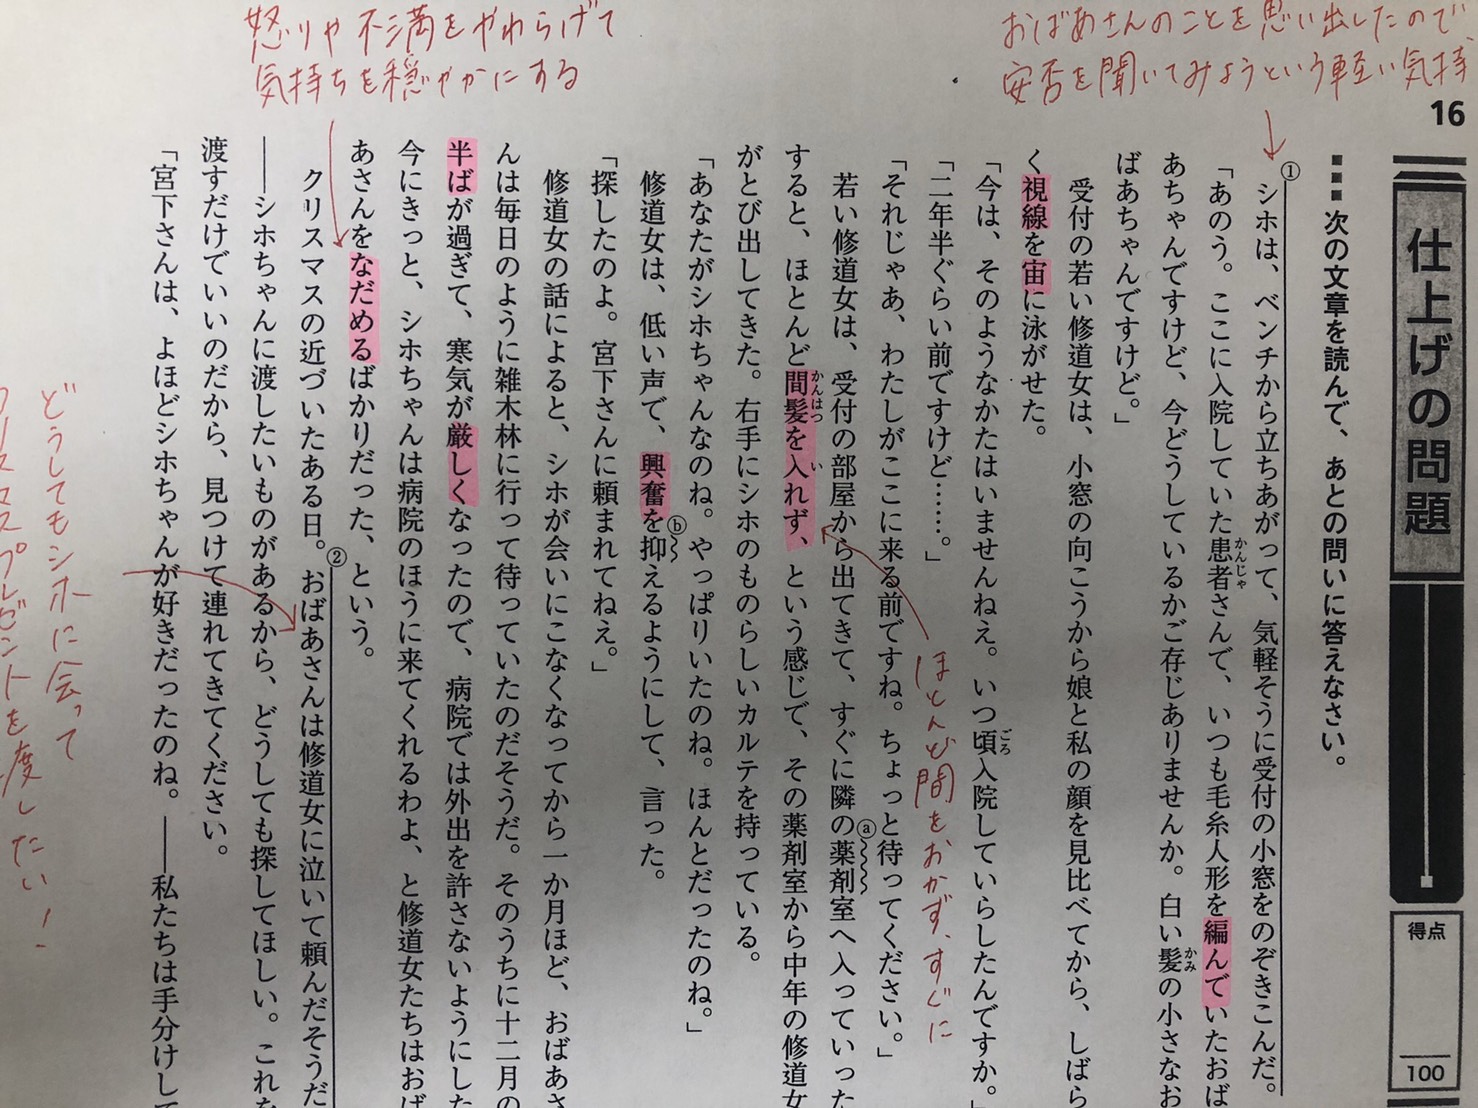 16
仕上げの問題
得点
100
次の文章を読んで、あとの問いに答えなさい。
おばあさんのことを思い出したので、
安否を聞いてみようという軽い気持
①
シホは、ベンチから立ちあがって、気軽そうに受付の小窓をのぞきこんだ。
「あのう。ここに入院していた患者さんで、いつも毛糸人形を編んでいたおば
かんじゃ
あちゃんですけど、今どうしているかご存じありませんか。白い髪の小さなお
かみ
ばあちゃんですけど。」
受付の若い修道女は、小窓の向こうから娘と私の顔を見比べてから、しばら
く視線を宙に泳がせた。
「今は、そのようなかたはいませんねえ。いつ頃入院していらしたんですか。」
ごろ
「二年半ぐらい前ですけど……。」
「それじゃあ、わたしがここに来る前ですね。ちょっと待ってください。」
若い修道女は、受付の部屋から出てきて、すぐに隣の薬剤室へ入っていった
ⓐ
すると、ほとんど間髪を入れず、という感じで、その薬剤室から中年の修道女
かんはつ
い
ほとんど間をおかず、すぐに
がとび出してきた。右手にシホのものらしいカルテを持っている。
「あなたがシホちゃんなのね。やっぱりいたのね。ほんとだったのね。」
修道女は、低い声で、興奮を抑えるようにして、言った。
ⓑ
「探したのよ。宮下さんに頼まれてねえ。」
修道女の話によると、シホが会いにこなくなってから一か月ほど、おばあさ
んは毎日のように雑木林に行って待っていたのだそうだ。そのうちに十二月の
半ばが過ぎて、寒気が厳しくなったので、病院では外出を許さないようにした
今にきっと、シホちゃんは病院のほうに来てくれるわよ、と修道女たちはおば
あさんをなだめるばかりだった、という。
怒りや不満をやわらげて
気持ちを穏やかにする
クリスマスの近づいたある日。おばあさんは修道女に泣いて頼んだそうだ
②
――シホちゃんに渡したいものがあるから、どうしても探してほしい。これを
渡すだけでいいのだから、見つけて連れてきてください。
「宮下さんは、よほどシホちゃんが好きだったのね。――私たちは手分けして
どうしてもシホに会って
クリスマスプレゼントを渡したい！